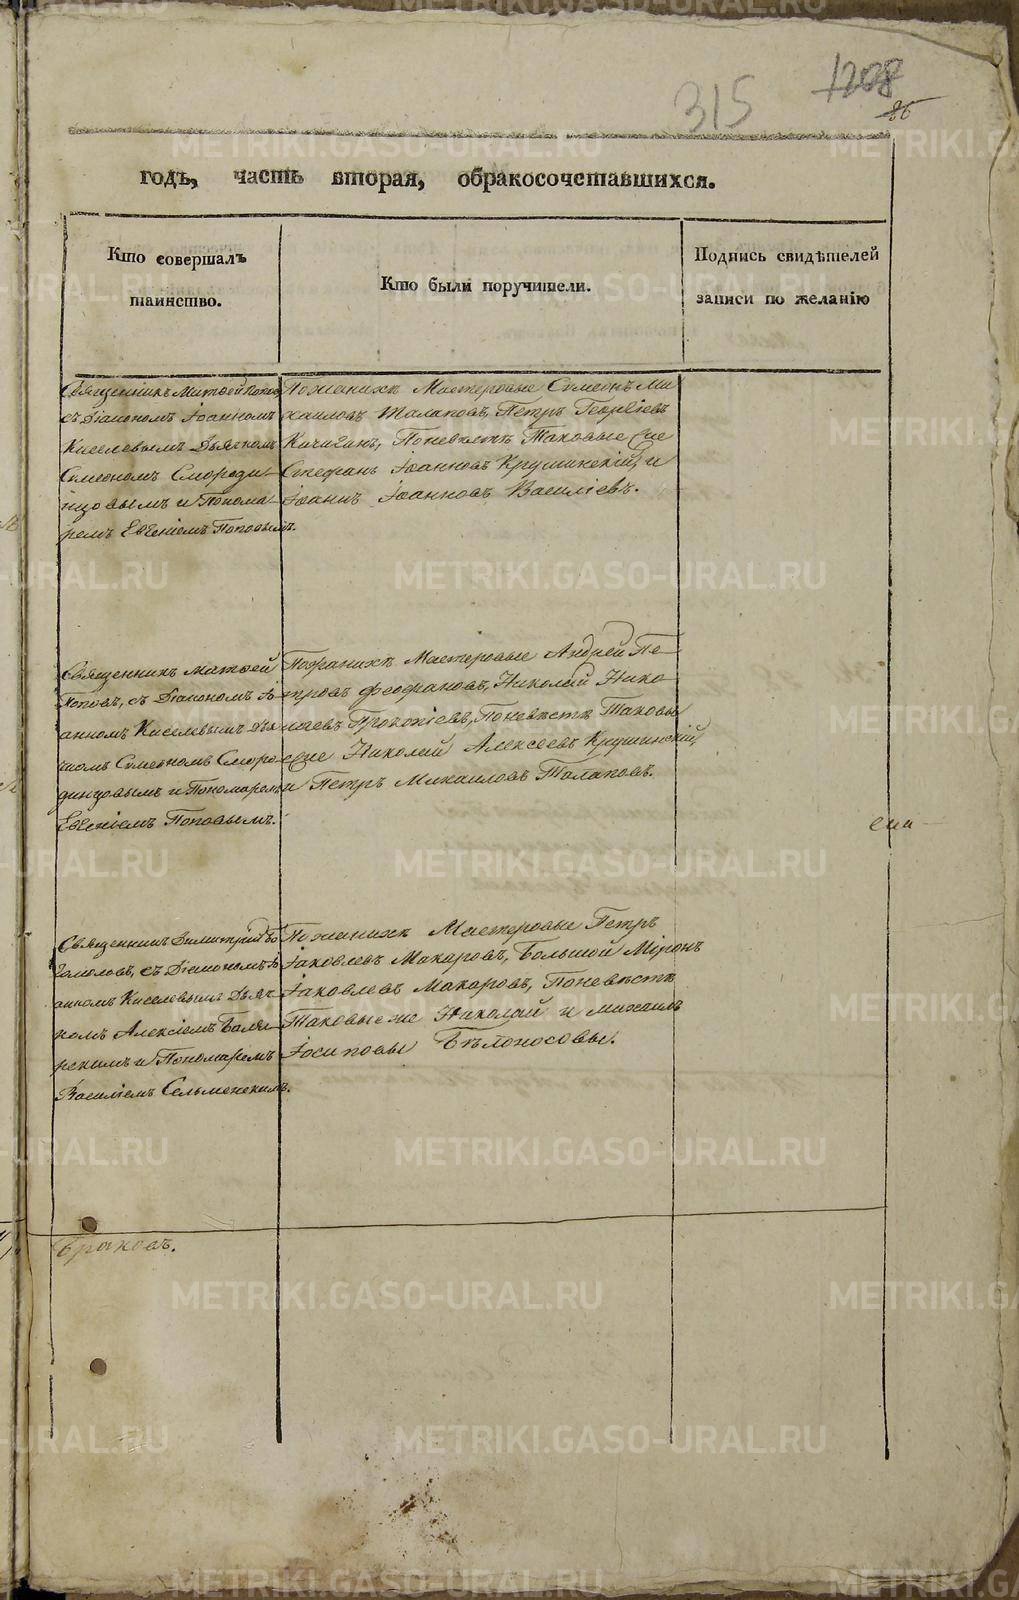 315
1208
26
годъ, часть вторая, обракосочетавшихся.
Кто совершалъ
таинство.
Кто были поручители.
Подпись свидѣтелей
записи по желанію
Священникъ Матѳей Поповъ
съ Діакономъ Іоанномъ
Киселевымъ Дьячкомъ
Сѵмеономъ Смороди
нцовымъ и Понома
ремъ Евгеніемъ Поповымъ.
По женихѣ Мастеровые Сѵмеонъ Ми
хаиловъ Талаповъ, Петръ Георгіевъ
Кичигинъ, По невѣстѣ Таковые же
Стефанъ Іоанновъ Крушинскій, и
Іоаннъ Іоанновъ Василіевъ.
Священникъ Матѳей
Поповъ, съ Діакономъ Іо
анномъ Киселевымъ Дья
чкомъ Сѵмеономъ Сморо
динцовымъ и Пономаремъ
Евгеніемъ Поповымъ.
По женихѣ Мастеровые Андрей Пе
тровъ Феофановъ, Николай Нико
лаевъ Прокопіевъ, По невѣстѣ Таковы
е же Николай Алексеевъ Крушинскій,
и Петръ Михаиловъ Талаповъ.
Священникъ Димитрій Бо
гомоловъ, съ Діакономъ Іо
анномъ Киселевымъ Дьяч
комъ Алексіемъ Бояр
скимъ и Пономаремъ
Василіемъ Сельменскимъ.
По женихѣ Мастеровые Петръ
Іаковлевъ Макаровъ, Большой Миронъ
Іаковлевъ Макаровъ, По невѣстѣ
Таковые же Николай и Михаилъ
Іосиповы Бѣлоносовы.
Браковъ.
METRIKI.GASO-URAL.RU